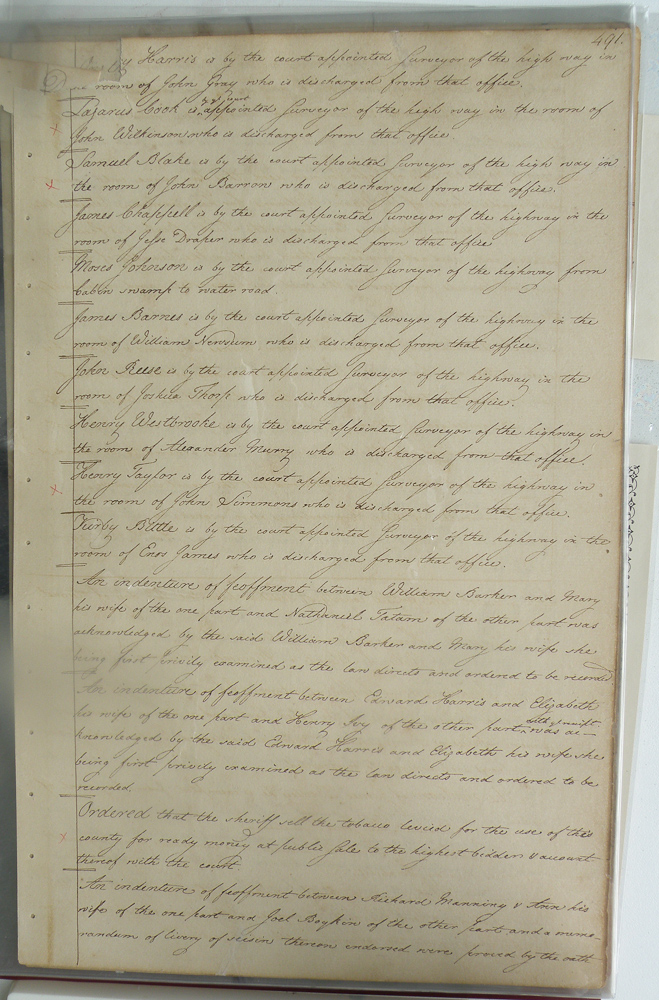 491.
Harris is by the court appointed Surveyor of the high way in
room of John Gray who is discharged from that office.
Lazarus Cook is by ye Court appointed Surveyor of the high way in the room of
John Wilkinson who is discharged from that office
Samuel Blake is by the court appointed Surveyor of the high way in
the room of John Barrow who is discharged from that office.
James Chappell is by the court appointed Surveyor of the highway in the
room of Jesse Draper who is discharged from that office
Moses Johnson is by the court appointed Surveyor of the highway from
Cabin swamp to water road.
James Barnes is by the court appointed Surveyor of the highway in the
room of William Newsum who is discharged from that office.
John Reese is by the court appointed Surveyor of the highway in the
room of Joshua Thorp who is discharged from that office.
Henry Westbrooke is by the court appointed Surveyor of the highway in
the room of Alexander Murry who is discharged from that office.
Henry Taylor is by the court appointed Surveyor of the highway in
the room of John Simmons who is discharged from that office.
Kirby Bittle is by the court appointed Surveyor of the highway in the
room of Enos James who is discharged from that office.
An indenture of feoffment between William Barker and Mary
his wife of the one part and Nathaniel Tatum of the other part was
acknowledged by the said William Barker and Mary his wife she
being first privily examined as the law directs and ordered to be recorded
An indenture of feoffment between Edward Harris and Elizabeth
his wife of the one part and Henry Ivy of the other part was ac-
knowledged by the said Edward Harris and Elizabeth his wife she
being first privily examined as the law directs and ordered to be
recorded.
Ordered that the sheriff sell the tobacco levied for the use of this
county for ready money at public sale to the highest bidders & account
thereof with the court.
An indenture of feoffment between Richard Manning & Ann his
wife of the one part and Joel Boykin of the other part and a memo-
randum of livery of seisin thereon endorsed were proved by the oath